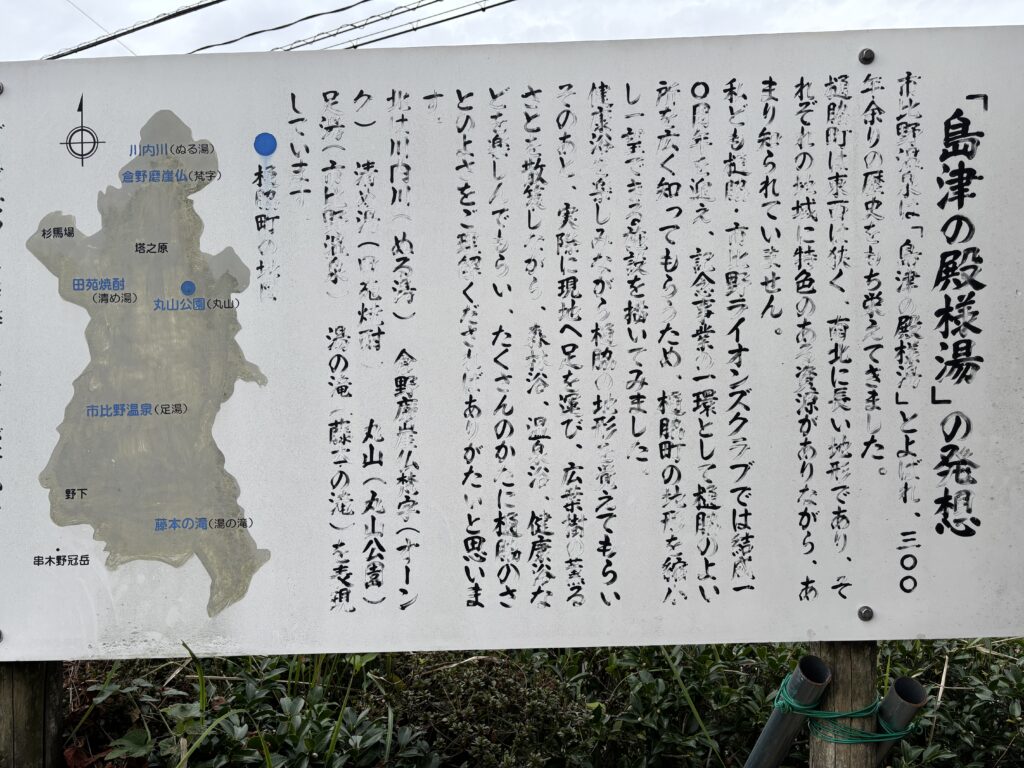 「島津の殿様湯」の発想
市比野温泉は「島津の殿様湯」とよばれ、三〇〇
年余りの歴史をもち栄えてきました。
樋脇町は東西は狭く、南北に長い地形であり、そ
れぞれの地域に特色のある資源がありながら、あ
まり知られていません。
私ども樋脇・市比野ライオンズクラブでは結成一
〇周年を迎え、記念事業の一環として樋脇のよい
所を広く知ってもらうため、樋脇町の地形を縮小
し一望できる施設を描いてみました。
健康浴を楽しみながら樋脇の地形を覚えてもらい
そのあと、実際に現地へ足を運び、広葉樹の茂る
さとを散策しながら、森林浴、温泉浴、健康浴な
どを楽しんでもらい、たくさんのかたに樋脇のさ
とのよさをご理解くださればありがたいと思いま
す。
北は川内川(ぬる湯) 倉野磨崖仏梵字(オーン
ク) 清め湯(田苑焼酎) 丸山(丸山公園)
足湯(市比野温泉) 湯の滝(藤本の滝)を表現
しています
樋脇町の地図
川内川(ぬる湯)
倉野磨崖仏(梵字)
杉馬場
塔之原
田苑焼酎
(清め湯)
丸山公園(丸山)
市比野温泉(足湯)
野下
藤本の滝(湯の滝)
串木野冠岳